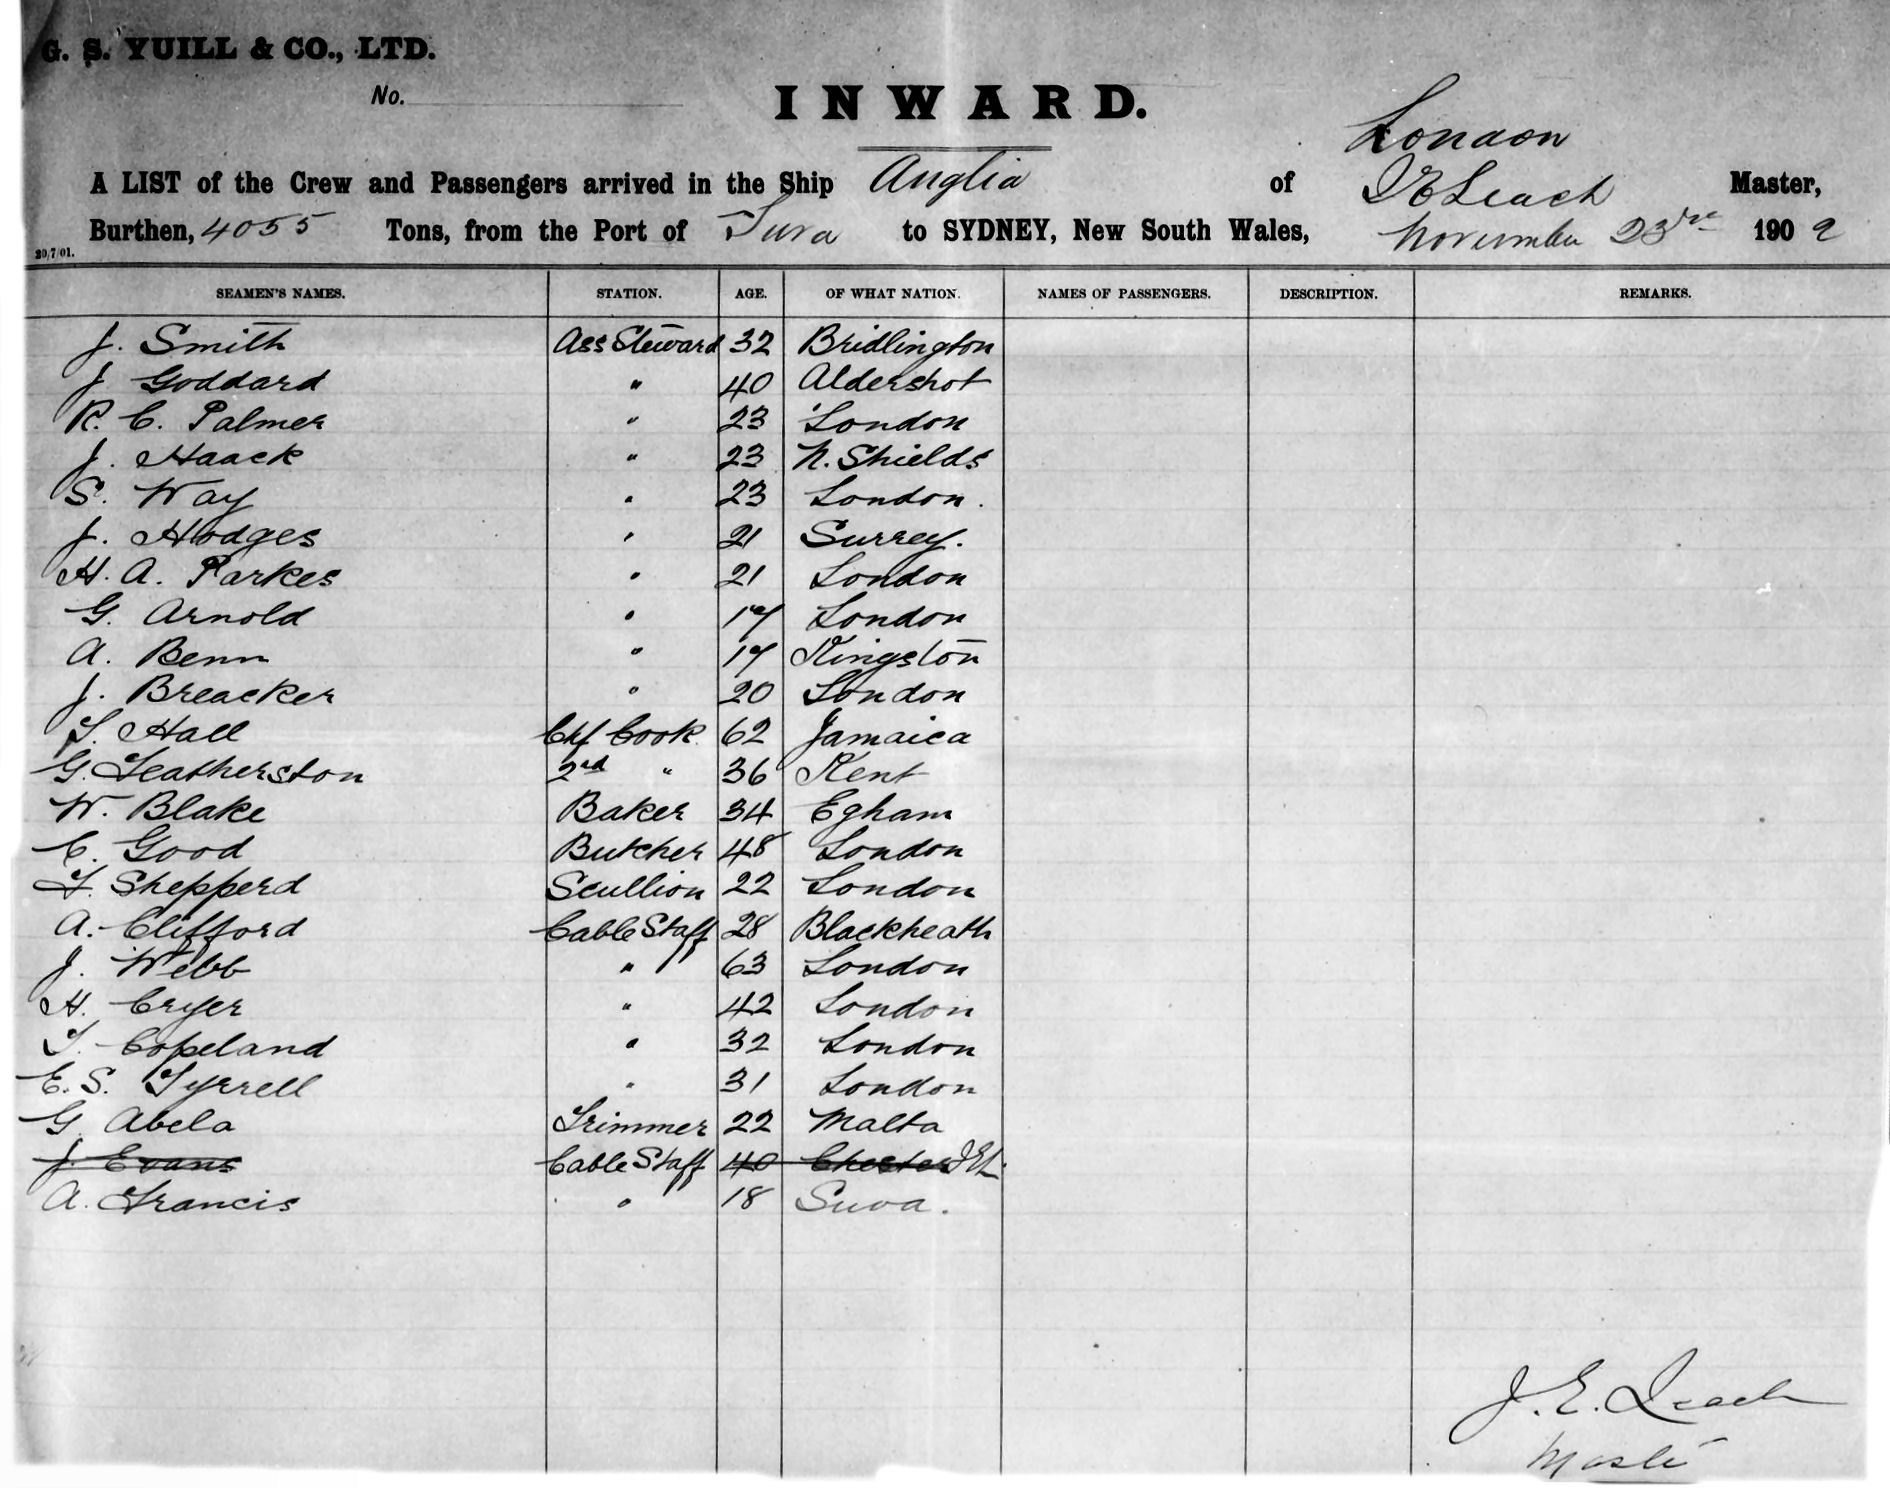 G. S. YUILL & CO., LTD.
No.
INWARD.
London
A LIST of the Crew and Passengers arrived in the Ship Anglia of J E Leach Master,
Burthen, 4055 Tons, from the Port of Suva to SYDNEY, New South Wales, November 23rd 1902
20/7/01.
SEAMEN'S NAMES. STATION. AGE. OF WHAT NATION. NAMES OF PASSENGERS. DESCRIPTION. REMARKS.
J. Smith Ass Steward 32 Bridlington
J Goddard " 40 Aldershot
R. C. Palmer " 23 London
J. Haack " 23 N. Shields
S. Way " 23 London.
J. Hodges " 21 Surrey.
H. A. Parkes " 21 London
G. Arnold " 17 London
A. Benn " 17 Kingston
J. Breacker " 20 London
T. Hall Chf Cook 62 Jamaica
G. Featherston 2nd " 36 Kent
W. Blake Baker 34 Egham
C. Good Butcher 48 London
F. Shepperd Scullion 22 London
A. Clifford Cable Staff 28 Blackheath
J. Webb " 63 London
H. Cryer " 42 London
T. Copeland " 32 London
E. S. Tyrrell " 31 London
G Abela Trimmer 22 Malta
J. Evans Cable Staff 40 Chester JEL
A. Francis " 18 Suva.
J. E. Leach
Master